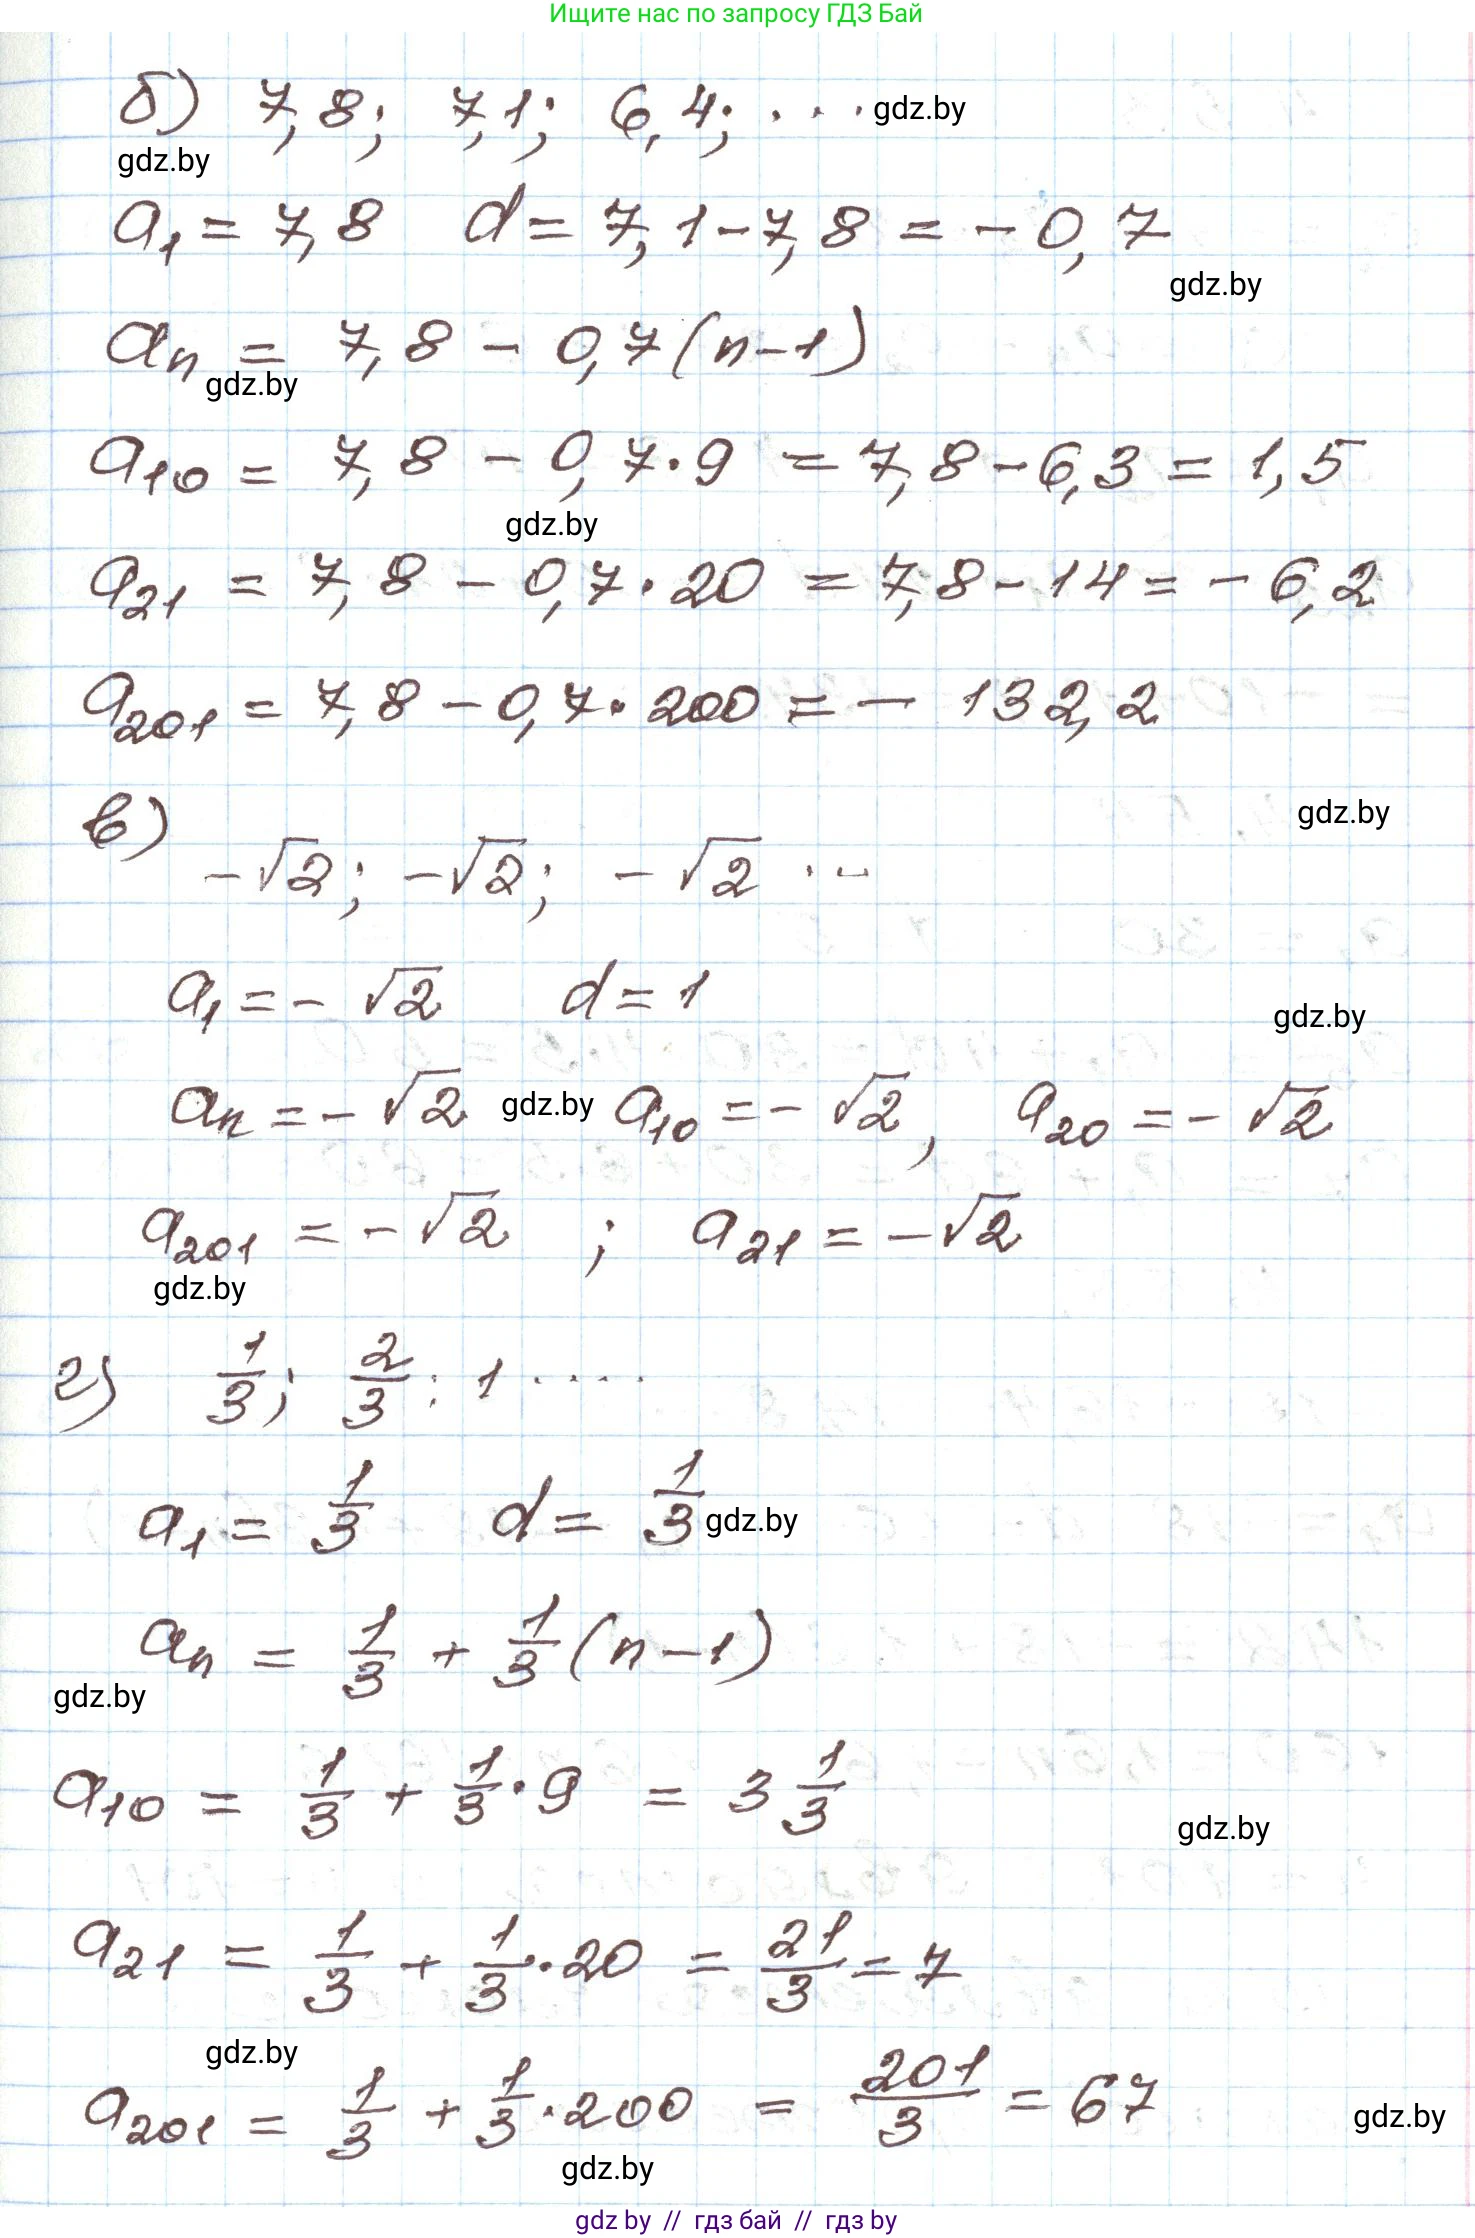 Ищите нас по запросу ГДЗ Бай
б) 7,8; 7,1; 6,4; ... gdz.by
gdz.by
a₁ = 7,8 d = 7,1 - 7,8 = - 0,7
gdz.by
aₙ = 7,8 - 0,7(n-1)
gdz.by
a₁₀ = 7,8 - 0,7·9 = 7,8 - 6,3 = 1,5
gdz.by
a₂₁ = 7,8 - 0,7·20 = 7,8 - 14 = - 6,2
a₂₀₁ = 7,8 - 0,7·200 = - 132,2
в) gdz.by
-√2; -√2; -√2 ...
a₁ = - √2 d = 1
gdz.by
aₙ = - √2 gdz.by a₁₀ = - √2, a₂₀ = - √2
a₂₀₁ = - √2 ; a₂₁ = - √2
gdz.by
г) 1/3; 2/3: 1 ....
a₁ = 1/3 d = 1/3 gdz.by
aₙ = 1/3 + 1/3(n-1)
gdz.by
a₁₀ = 1/3 + 1/3·9 = 3 1/3
gdz.by
a₂₁ = 1/3 + 1/3·20 = 21/3 = 7
gdz.by
a₂₀₁ = 1/3 + 1/3·200 = 201/3 = 67
gdz.by
gdz.by
gdz by // гдз бай // гдз by